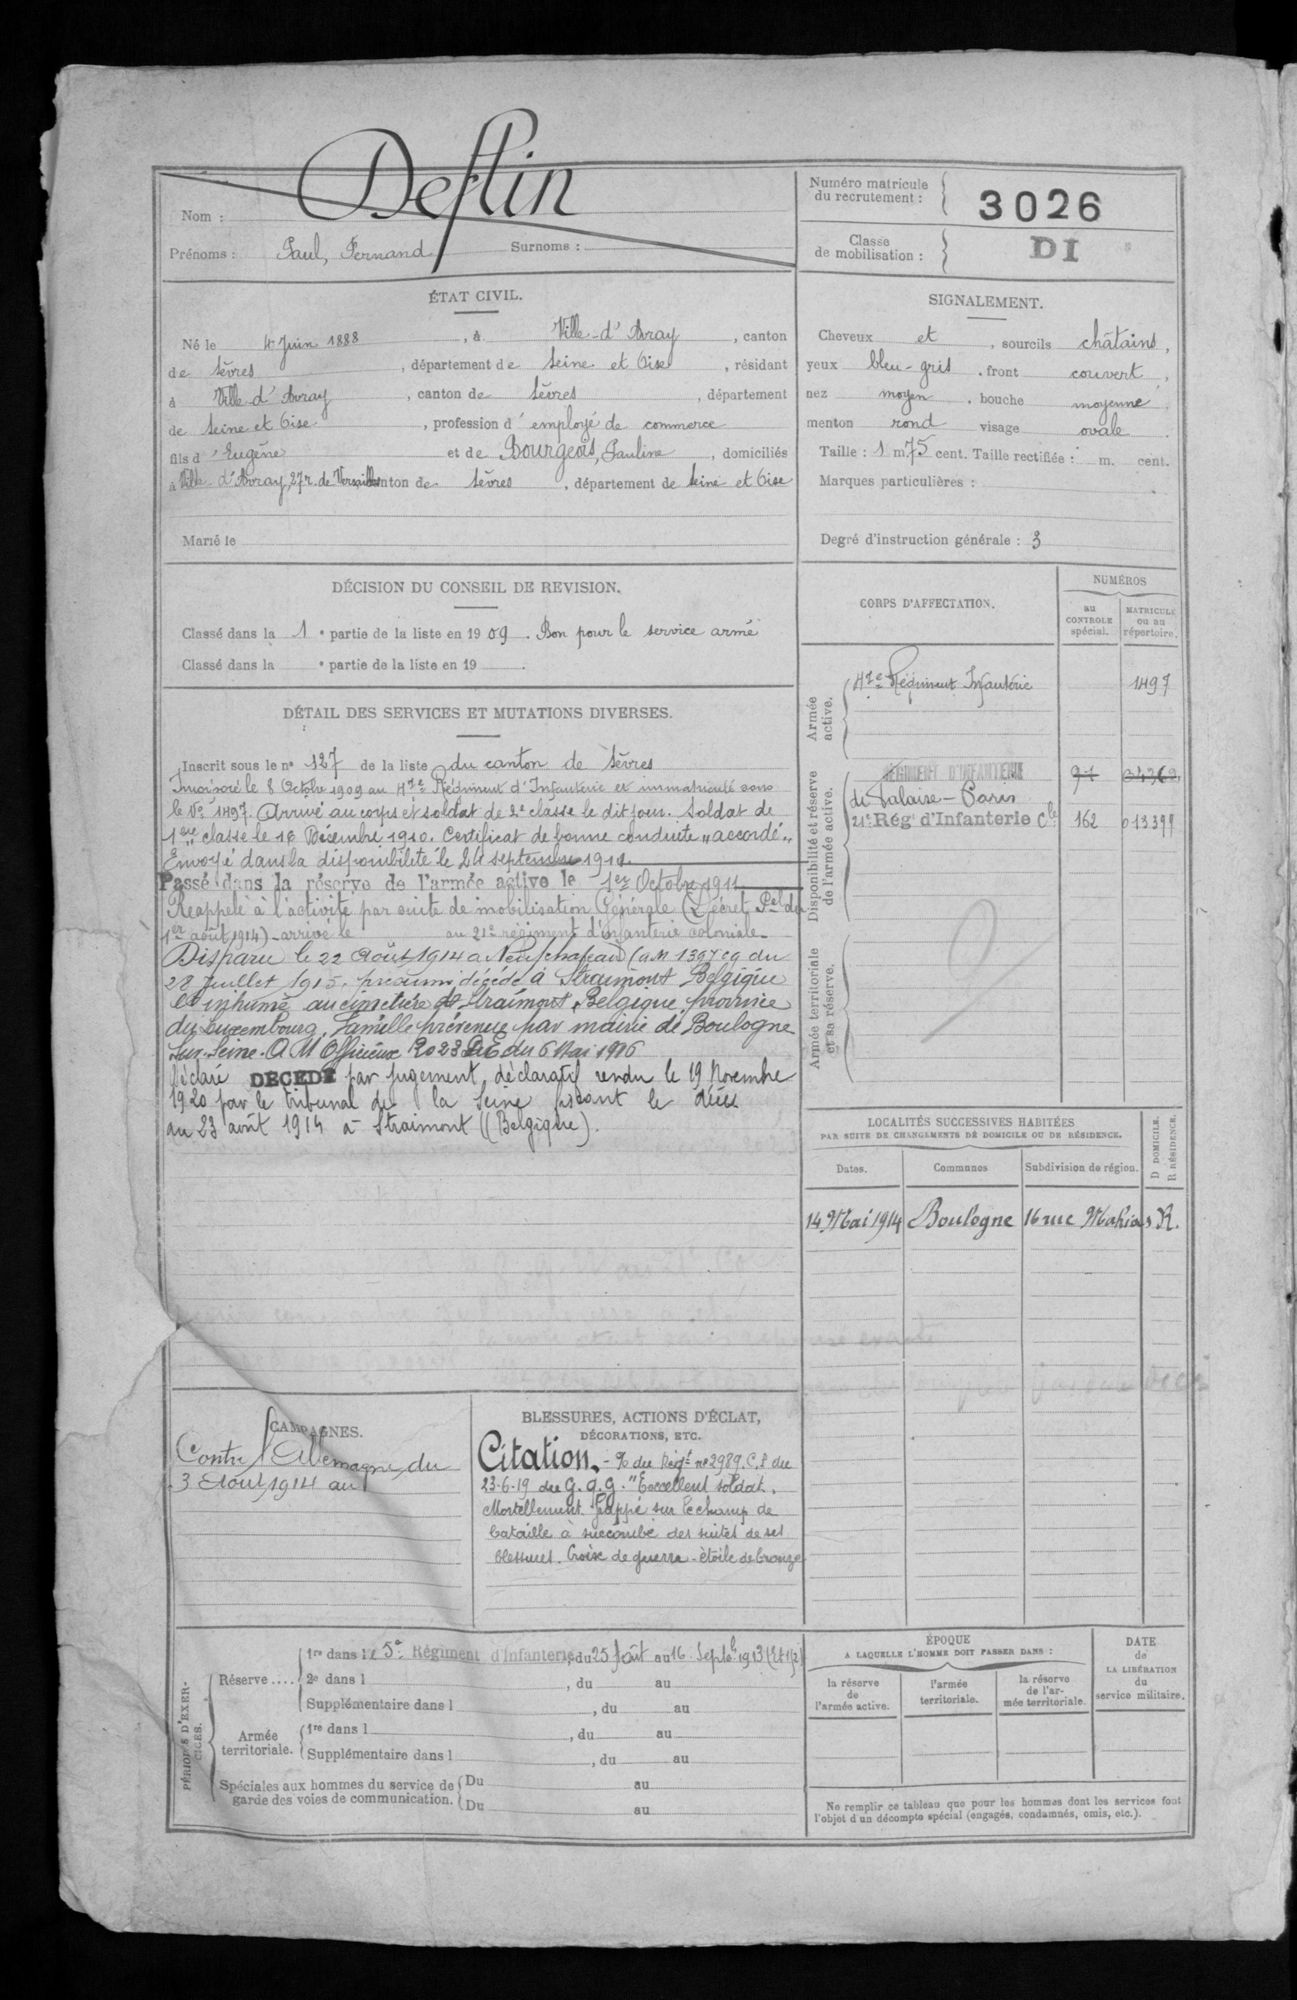 Nom : Deflin
Prénoms : Paul, Fernand Surnoms :
Numéro matricule du recrutement : 3026
Classe de mobilisation : DI
ÉTAT CIVIL.
Né le 4 Juin 1888, à Ville-d'Avray, canton
de Sèvres, département de Seine et Oise, résidant
à Ville d'Avray, canton de Sèvres, département
de Seine et Oise, profession d'employé de commerce
fils d'Eugène et de Bourgeois, Pauline, domiciliés
à Ville d'Avray, 27 r. de Versailles canton de Sèvres, département de Seine et Oise
Marié le
SIGNALEMENT.
Cheveux et, sourcils châtains,
yeux bleu-gris, front couvert,
nez moyen, bouche moyenne,
menton rond visage ovale.
Taille : 1 m. 75 cent. Taille rectifiée : m. cent.
Marques particulières :
Degré d'instruction générale : 3
DÉCISION DU CONSEIL DE REVISION.
Classé dans la 1e partie de la liste en 1909. Bon pour le service armé
Classé dans la e partie de la liste en 19 .
DÉTAIL DES SERVICES ET MUTATIONS DIVERSES.
Inscrit sous le n° 127 de la liste du canton de Sèvres
Incorporé le 8 Octobre 1909 au Régiment d'Infanterie et immatriculé sous
le N° 1497. Arrivé au corps et soldat de 2e classe le dit jour. Soldat de
1ère classe le 18 Décembre 1910. Certificat de bonne conduite "accordé"
Envoyé dans la disponibilité le 24 septembre 1911.
Passé dans la réserve de l'armée active le 1er Octobre 1911
Rappelé à l'activité par suite de mobilisation Générale (Décret Pel du
1er août 1914) - arrivé le au 21e régiment d'infanterie coloniale -
Disparu le 22 Août 1914 à Neufchateau (a M 1397 cg du
28 Juillet 1915. présumé décédé à Straimont Belgique
et inhumé au cimetière de Straimont, Belgique, province
du Luxembourg. Famille prévenue par mairie de Boulogne
Sur-Seine. A M Officieux du 6 Mai 1916
Déclaré DÉCÉDÉ par jugement déclaratif rendu le 19 Novembre
1920 par le tribunal de la Seine fixant le décès
au 23 août 1914 à Straimont (Belgique).
CORPS D'AFFECTATION.
NUMÉROS
au CONTROLE spécial.
MATRICULE ou au répertoire.
Armée active.
Régiment Infanterie 1497
Disponibilité et réserve de l'armée active.
RÉGIMENT D'INFANTERIE
de Falaise - Paris
21e Rég' d'Infanterie Cle 162 013399
Armée territoriale et sa réserve.
LOCALITÉS SUCCESSIVES HABITÉES
PAR SUITE DE CHANGEMENTS DE DOMICILE OU DE RÉSIDENCE.
Dates. Communes Subdivision de région. D DOMICILE. R RÉSIDENCE.
14 Mai 1914 Boulogne 16 rue Mahias R.
CAMPAGNES.
Contre l'Allemagne du
3 Août 1914 au
BLESSURES, ACTIONS D'ÉCLAT,
DÉCORATIONS, ETC.
Citation. - % du Régt n° 2989. C. P du
23-6-19 du G.Q.G. "Excellent soldat.
Mortellement frappé sur le champ de
bataille à succombé des suites de ses
blessures. Croix de guerre - étoile de bronze
PÉRIODES D'EXERCICES.
Réserve ....
1re dans le 5e Régiment d'Infanterie, du 25 Août au 16 Septbre 1913
2e dans l , du au
Supplémentaire dans l , du au
Armée territoriale.
1re dans l , du au
Supplémentaire dans l , du au
Spéciales aux hommes du service de garde des voies de communication.
Du au
Du au
ÉPOQUE
A LAQUELLE L'HOMME DOIT PASSER DANS :
la réserve de l'armée active.
l'armée territoriale.
la réserve de l'armée territoriale.
DATE de LA LIBÉRATION du service militaire.
Ne remplir ce tableau que pour les hommes dont les services font
l'objet d'un décompte spécial (engagés, condamnés, omis, etc.).